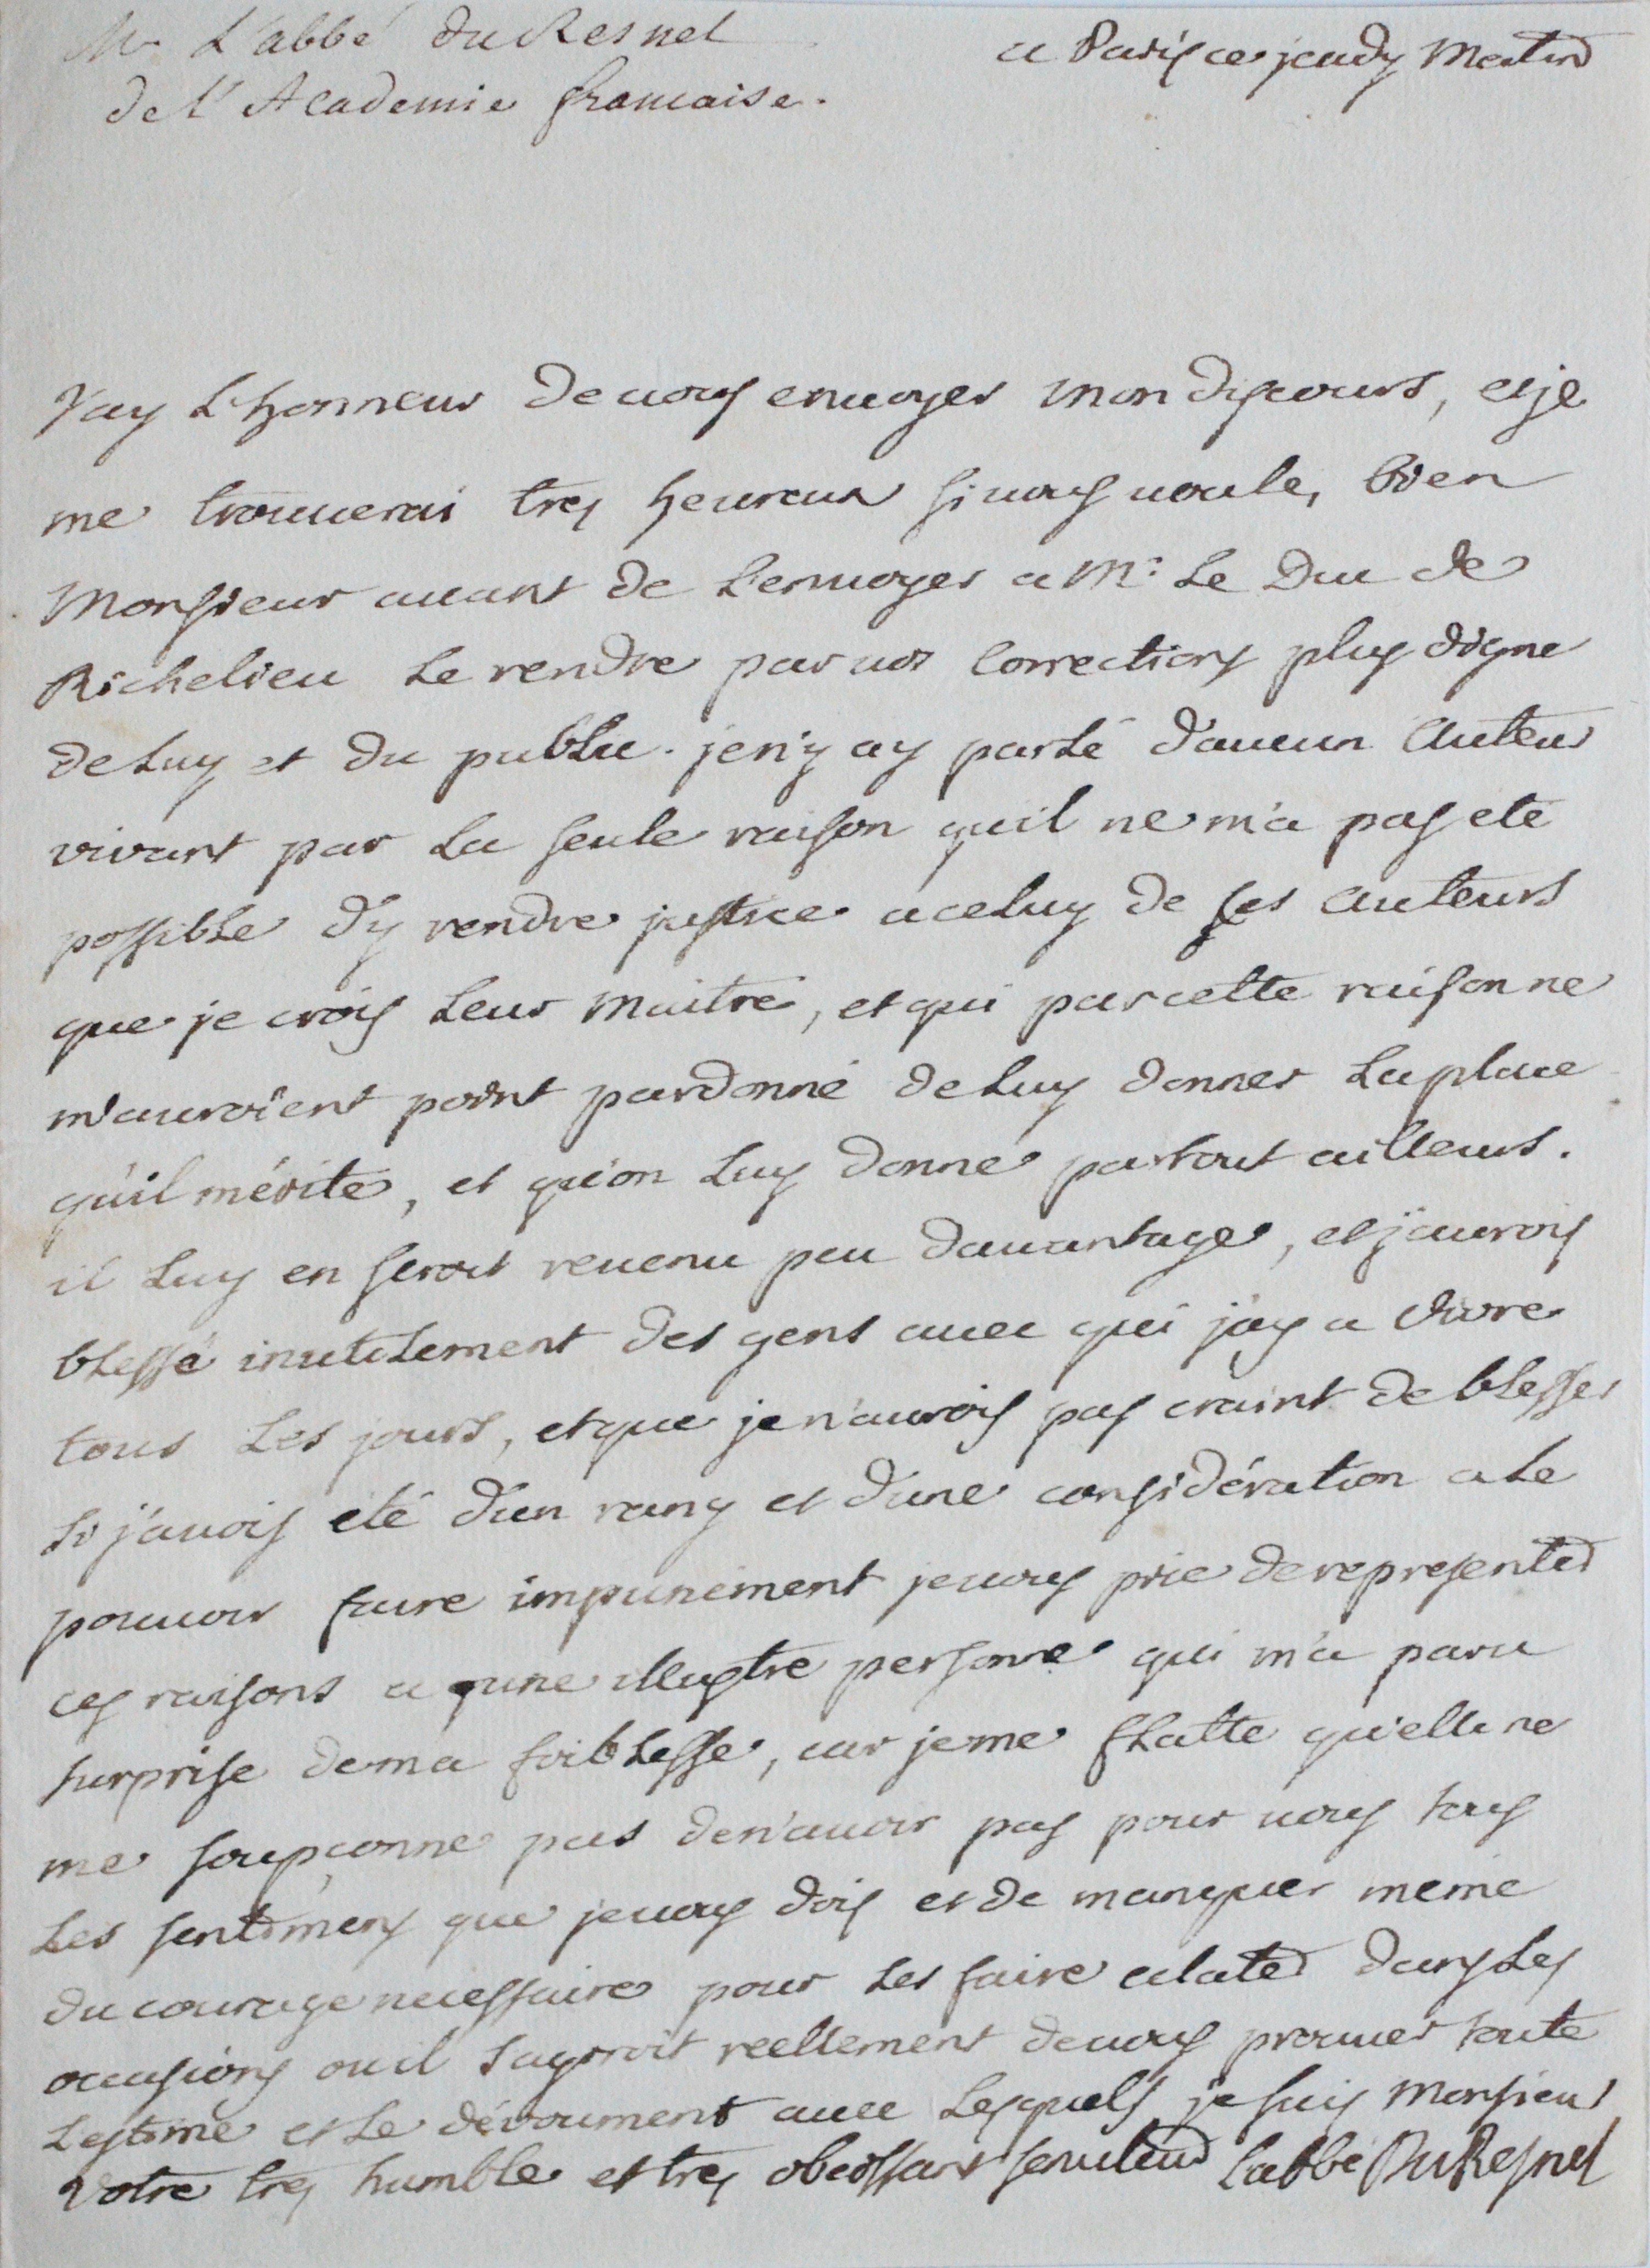 Mr L'abbé du Resnel
de l'Academie francaise.
a Paris ce jeudy matin
J'ay l'honneur de uous enuoyer mon discours, et je
me trouuerai tres heureux si uous uoulez bien
Monsieur auant de l'enuoyer a Mr. le Duc de
Richelieu le rendre par uos corrections plus digne
de luy et du public. je n'y ay parlé d'aucun auteur
vivant par la seule raison qu'il ne m'a pas eté
possible d'y rendre justice a celuy de ses auteurs
que je crois leur maitre, et qui par cette raison ne
m'auroient point pardonné de luy donner la place
qu'il mérite, et qu'on luy donne partout ailleurs.
il luy en seroit reuenu peu dauantage, et j'aurois
blessé inutilement des gens auec qui j'ay a vivre
tous les jours, et que je n'aurois pas craint de blesser
si j'auois eté d'un rang et d'une considération a le
pouuoir faire impunément je uous prie de representer
ces raisons a une illustre personne qui m'a paru
surprise de ma foiblesse, car je me flatte qu'elle ne
me soupçonne pas de n'auoir pas pour uous tous
les sentimens que je uous dois et de manquer meme
du courage necessaire pour les faire eclater dans les
occasions ou il s'agiroit reellement de uous prouuer toute
l'estime et le dévoument auec lesquels je suis Monsieur
Votre tres humble et tres obeissant seruiteur L'abbé Du Resnel